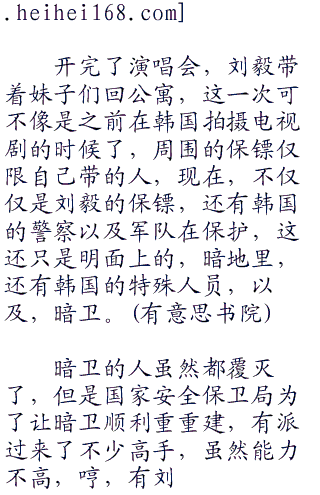 .heihei168.com]
开完了演唱会，刘毅带
着妹子们回公寓，这一次可
不像是之前在韩国拍摄电视
剧的时候了，周围的保镖仅
限自己带的人，现在，不仅
仅是刘毅的保镖，还有韩国
的警察以及军队在保护，这
还只是明面上的，暗地里，
还有韩国的特殊人员，以
及，暗卫。(有意思书院)
暗卫的人虽然都覆灭
了，但是国家安全保卫局为
了让暗卫顺利重重建，有派
过来了不少高手，虽然能力
不高，哼，有刘